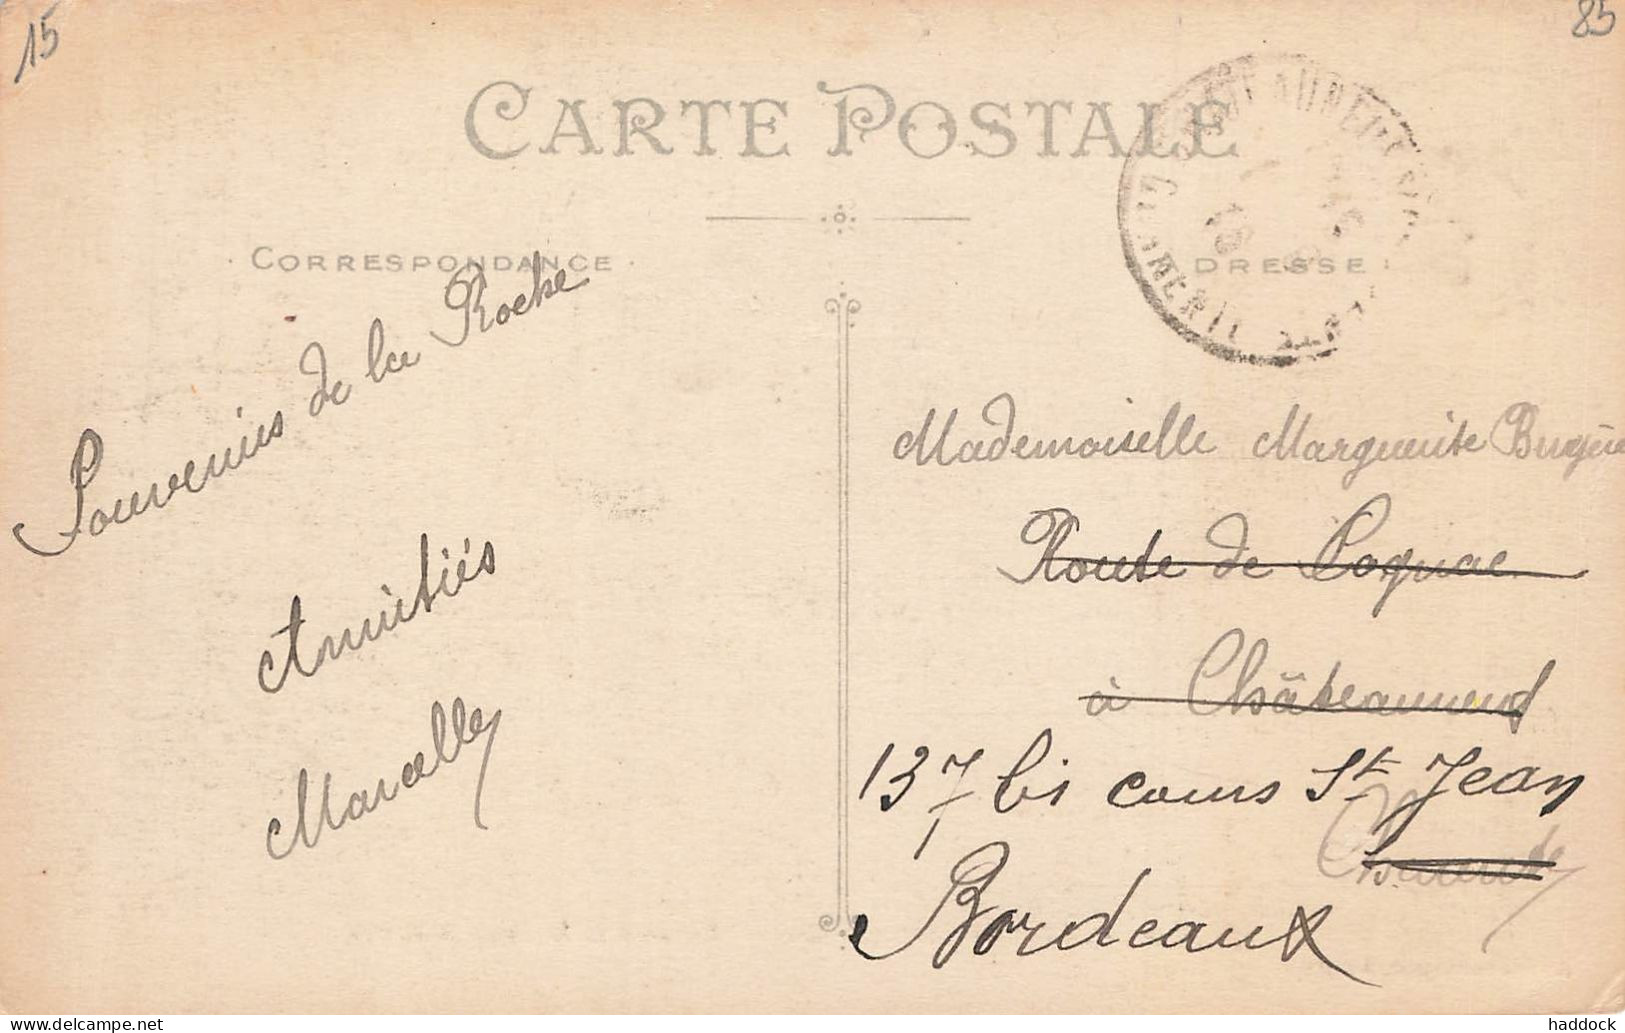 15
85
CARTE POSTALE
CORRESPONDANCE
DRESSE
Souvenirs de la Roche
Amitiés
Marcelle
Mademoiselle Marguerite
Route de Cognac
à Châteauneuf
137 bis cours St Jean
Charente
Bordeaux
delcampe.net
haddock